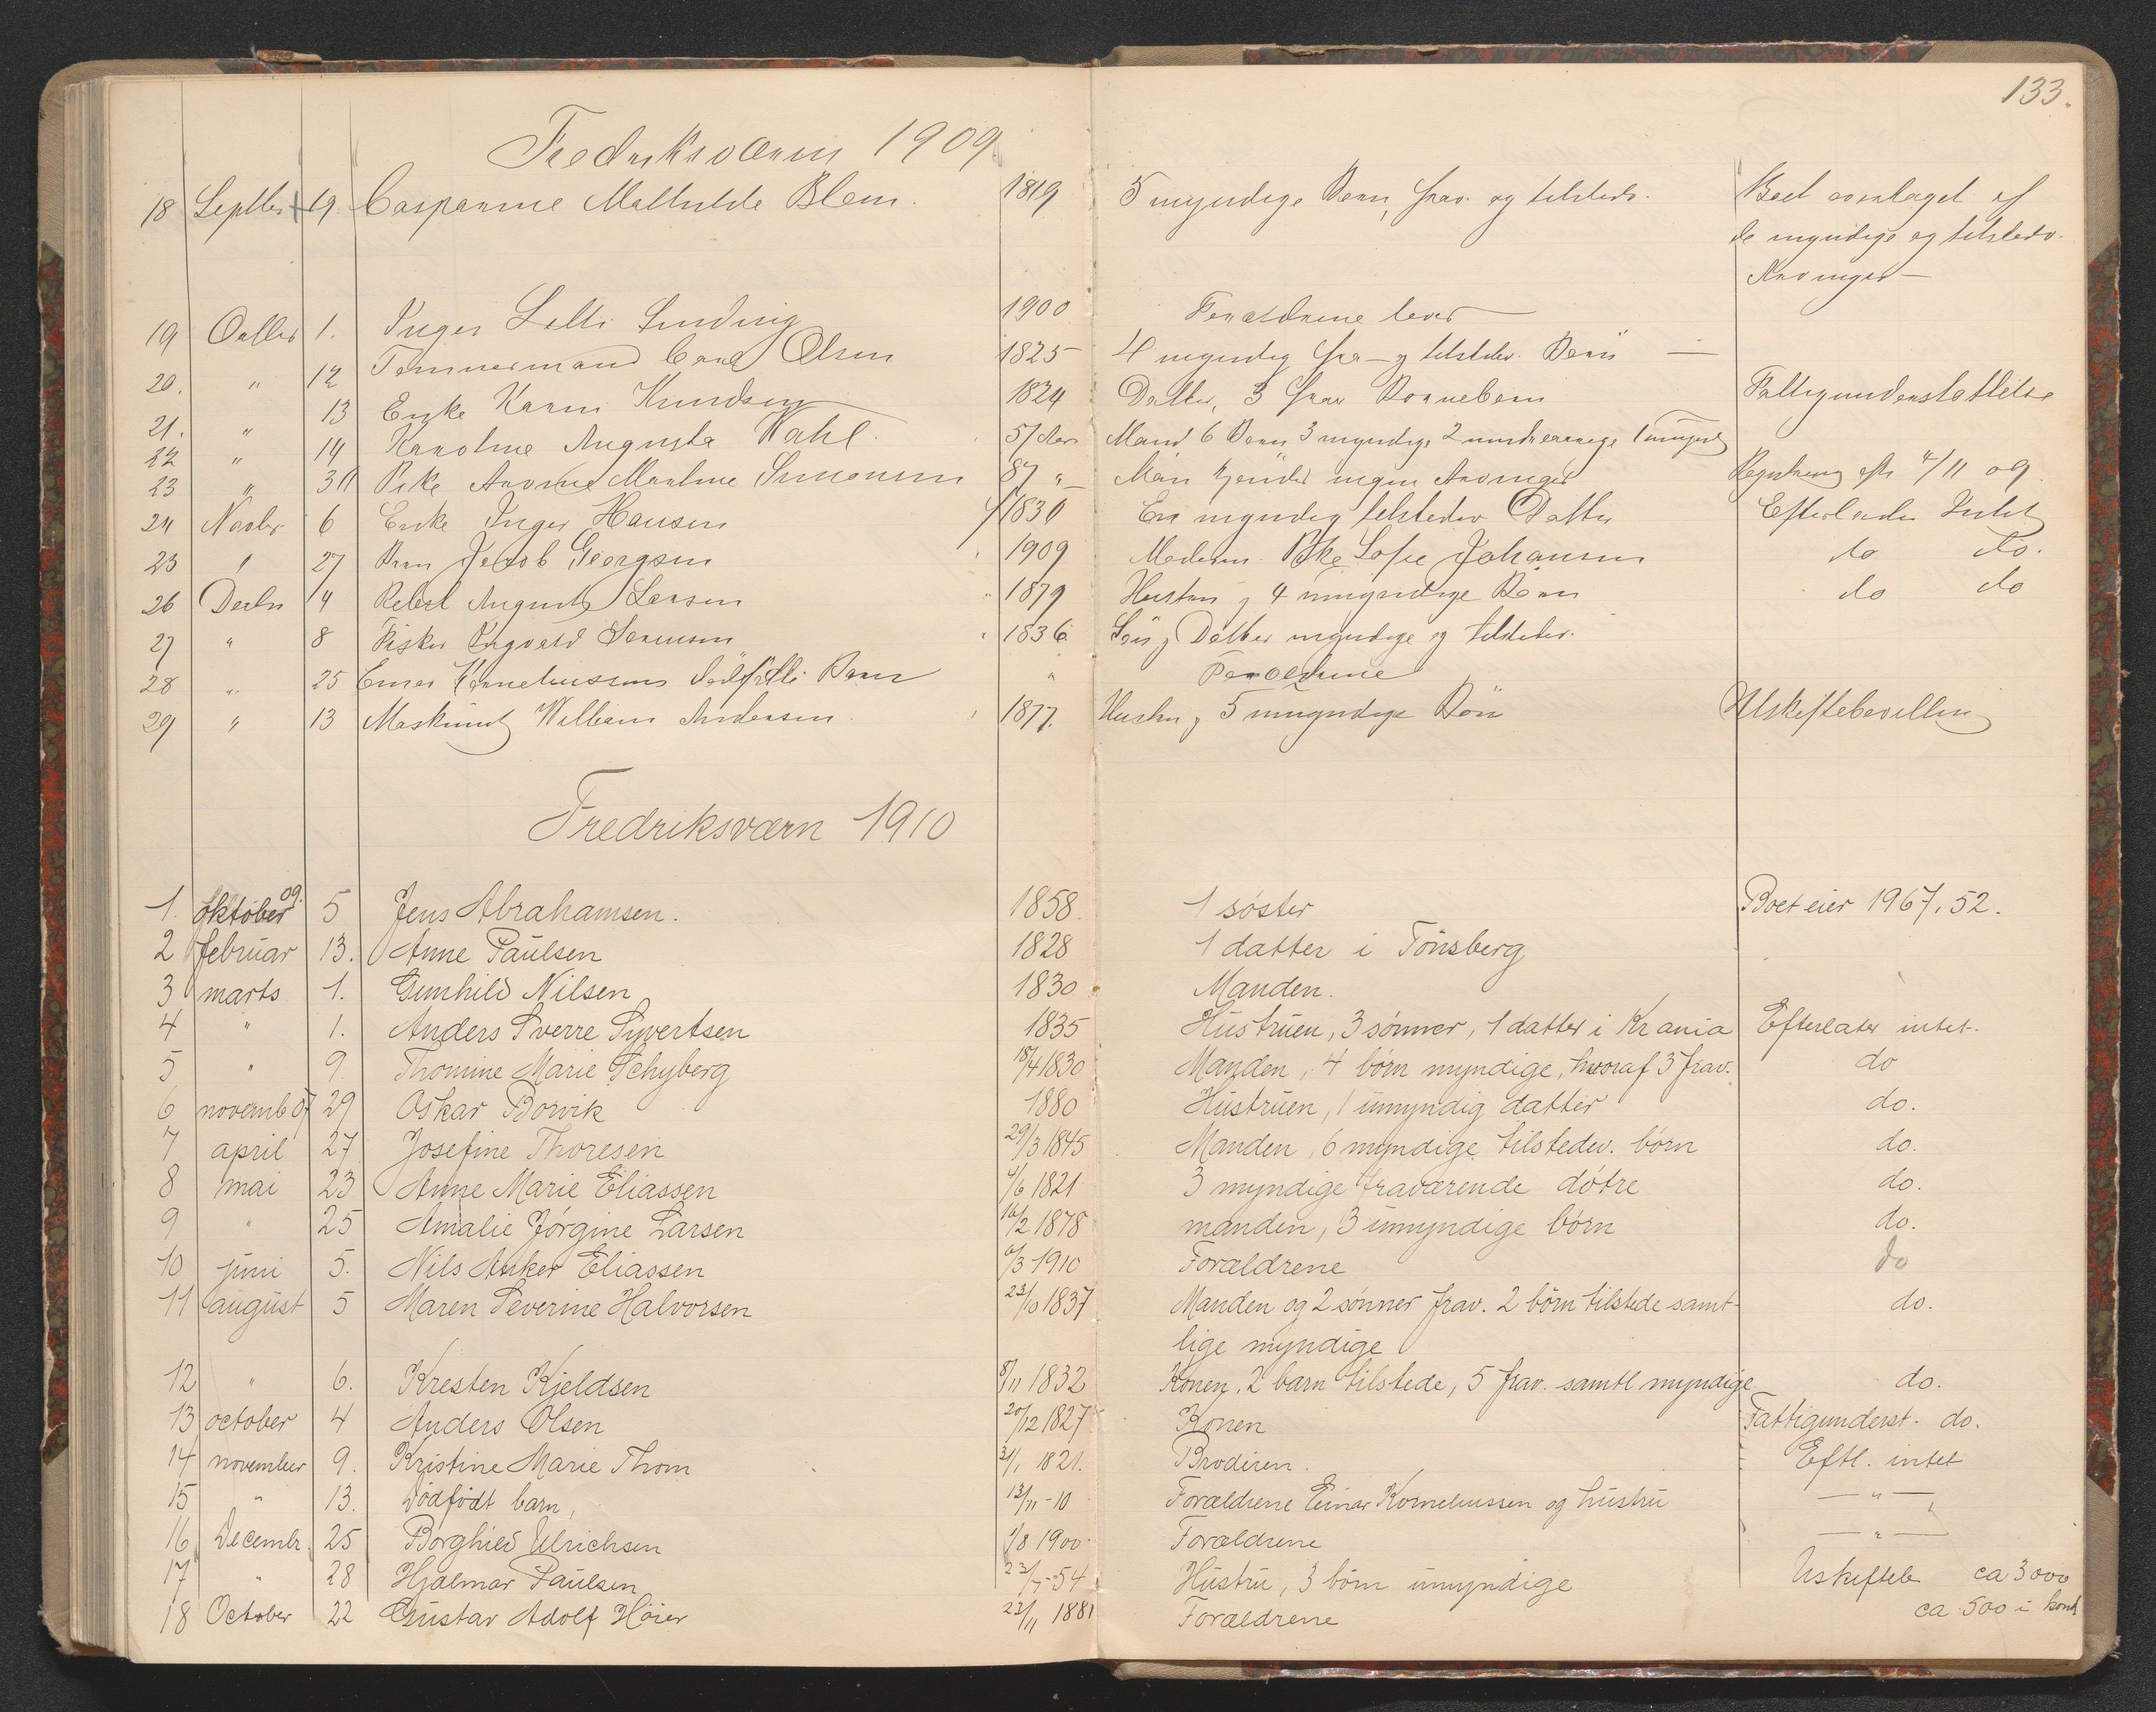 133.
Fredriksværn 1909
18 Septbr 19 Casparine Mathilde Blom. 1819 5 myndige Børn, frav. og tilstedv. Boet overtaget af
de myndige og tilstedv.
Arvinger
19 Octbr 1. Inger Sunding 1900 Forældrene lever
20. " 12 Tømmermand Carl Olsen 1825 4 myndig fra- og tilstdv. Børn
21. " 13 Enke Karen Knudsen 1824 Datter, 3 frav Børnebørn Fattigunderstøttelse
22 " 14 Karoline Augusta Wahl. 57 Aar Mand 6 Børn 3 myndige 2 mindreaarige 1 umynd
23 " 30 Pike Marthine Simonsen 87 " Man kjender ingen Arvinger Registrering eft. 4/11 09
24 Novbr 6 Enke Inger Hansen 1830 En myndig tilstedev Datter Efterlader Intet
25 " 27 Barn Jakob Georgsen 1909 Moderen Pike Sofie Johansen do do.
26 Decbr 4 August Larsen 1879 Hustru og 4 umyndige Børn do do
27 " 8 Fisker Ingvald Sørensen 1836 Søn og Datter myndige og tilstedev.
28 " 25 Einar Korneliussens dødfødte Barn " Forældrene
29 " 13 Maskinist William Andersen 1877. Hustru og 5 umyndige Børn Uskiftebevilling
Fredriksværn 1910
1. oktober 09. 5 Jens Abrahamsen. 1858. 1 søster Boet eier 1967,52.
2 februar 13. Anne Paulsen 1828 1 datter i Tønsberg
3 marts 1. Gunhild Nilsen 1830 Manden.
4 " 1. Anders Sverre Syvertsen 1835 Hustruen, 3 sønner, 1 datter i Kr ania Efterlater intet.
5 " 9. Thomine Marie Schyberg 18/4 1830 Manden, 4 børn myndige, hvoraf 3 frav. do
6 novemb 07 29 Oskar Borvik 1880 Hustruen, 1 umyndig datter do.
7 april 27 Josefine Thoresen 29/3 1845 Manden, 6 myndige tilstedev. børn do.
8 mai 23 Anne Marie Eliassen 4/6 1821 3 myndige fraværende døtre do.
9 " 25 Amalie Jørgine Larsen 16/2 1878 manden, 3 umyndige børn do.
10 juni 5. Nils Anker Eliassen 6/3 1910 Forældrene do
11 august 5 Maren Severine Halvorsen 23/10 1837 Manden og 2 sønner frav. 2 børn tilstede samt-
lige myndige do.
12 " 6. Kresten Kjeldsen 8/11 1832 Konen, 2 barn tilstede, 5 frav. samtl myndige do.
13 october 4 Anders Olsen 20/12 1827 Konen Fattigunderst. do.
14 november 9. Kristine Marie Thom 31/1 1821. Broderen. Eftl. intet
15 " 13. Dødfødt barn, 13/11-10 Forældrene Einar Kornelieussen og hustru — " —
16 Decembr. 25 Borghild Ulrichsen 1/8 1900 Forældrene — " —
17 " 28 Hjalmar Paulsen 23/7-54 Hustru, 3 børn umyndige Uskifteb ca 3000
18 October 22 Gustav Adolf Höier 23/11 1881 Forældrene ca 500 i kont